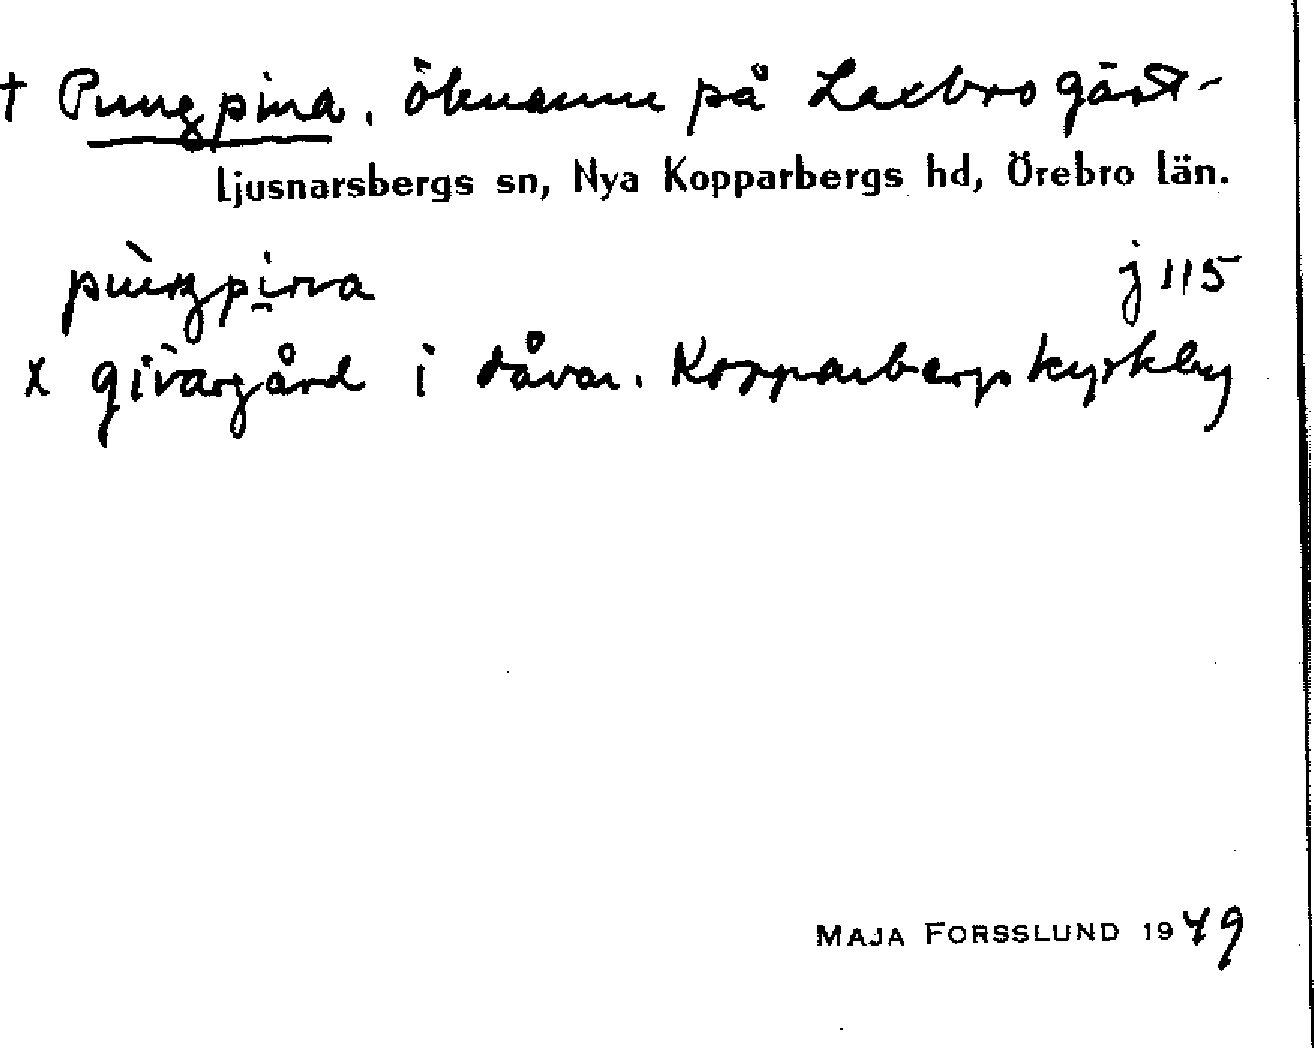 † Pungpina. öknamn på Laxbro gäst-
Ljusnarsbergs sn, Nya Kopparbergs hd, Örebro län.
pùŋpina j 115
x givargård i dåvar. Kopparbergs kyrkby
MAJA FORSSLUND 1949